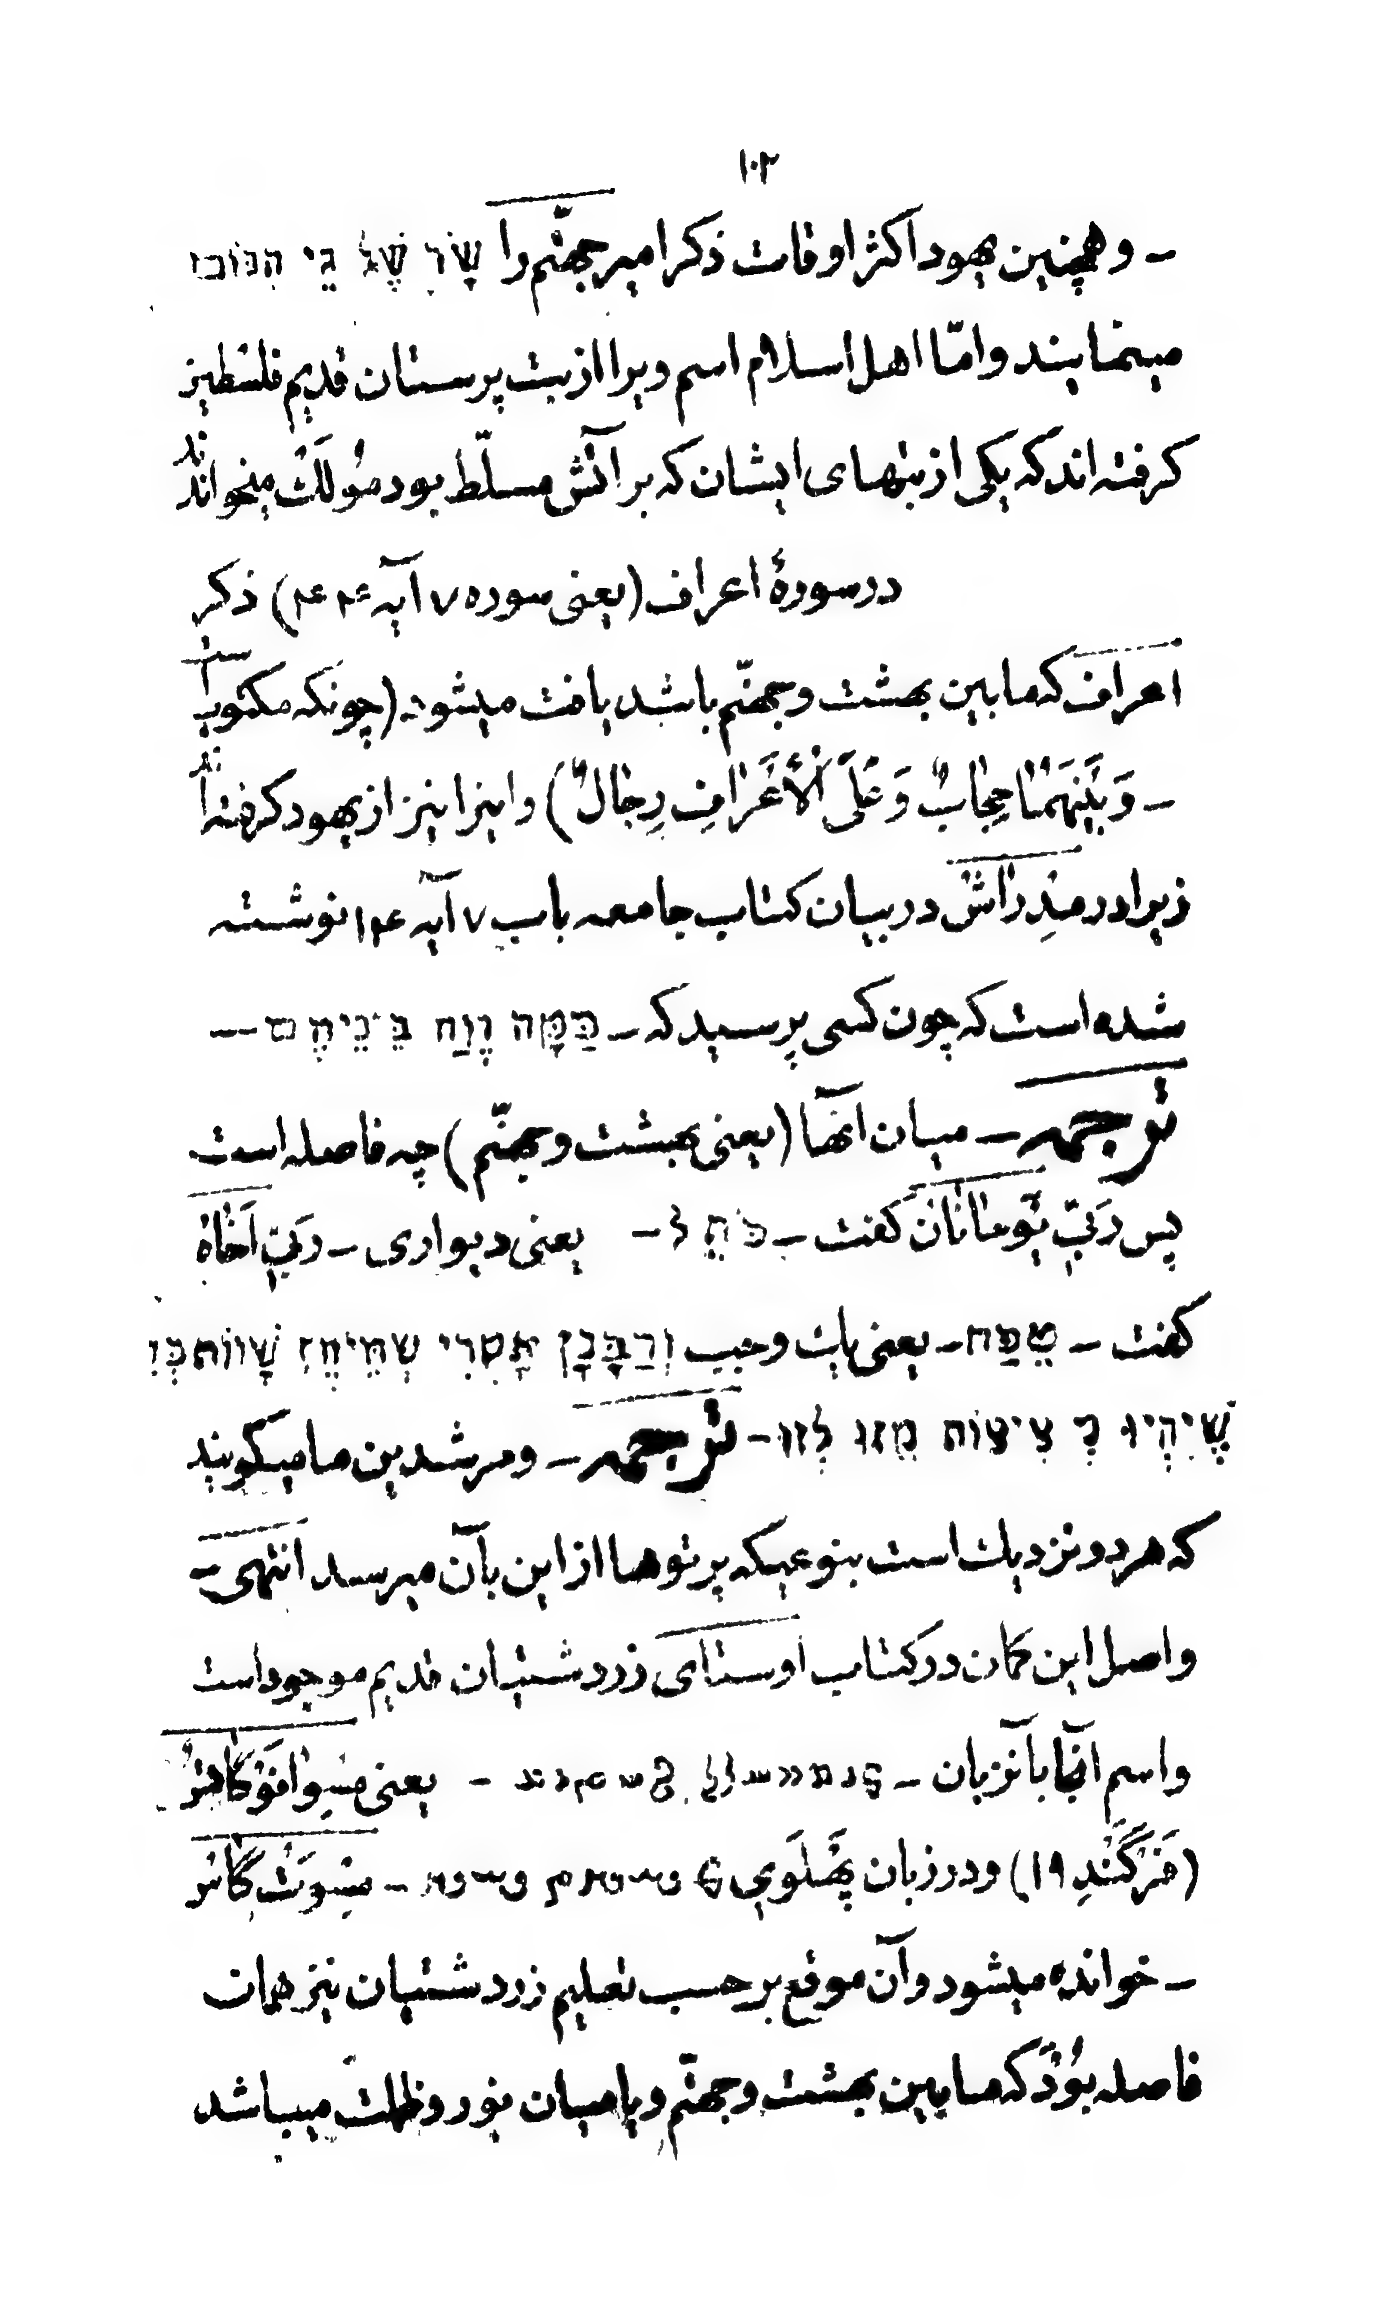 ۱۰۲
ـ وهمچنین یهود اکثر اوقات ذکر امیر جهنّم را שָׂר שֶׁל גֵי הִנּוֹם
مینمایند وامّا اهل اسلام اسم ویرا از بت پرستان قدیم فلسطین
کرفته اند که یکی از بتهای ایشان که بر آتش مسلّط بود مُولَك میخواندند
در سورهٔ اعراف (یعنی سوره ۷ آیه ۴۴) ذکر
اعراف که مابین بهشت وجهنّم باشد یافت میشود (چونکه مکتوب است
ـ وَبَیْنَهُمَا حِجَابٌ وَعَلَی الْأَعْرَافِ رِجَالٌ) واینرا نیز از یهود کرفته اند
زیرا در مِدْرَاش در بیان کتاب جامعه باب ۷ آیه ۱۴ نوشته
شده است که چون کسی پرسید که ـ כַּמָּה רֶוַח בֵּינֵיהֶם ـ
ترجمه ـ میان آنها (یعنی بهشت وجهنّم) چه فاصله است
پس رَبّی یُوحانَان کفت ـ כֹּתֶל ـ یعنی دیواری ـ رَبّی اَحَاه
کفت ـ טֶפַח ـ یعنی یك وجب וְרַבָּנָן אָמְרִי שְׁתֵּיהֶן שָׁווֹת כְּדֵי
שֶׁיִּהְיוּ מְצִיצוֹת מִזּוּ לְזוּ ـ ترجمه ـ ومرشدین ما میکویند
که هردو نزدیك است بنوعیکه پرتوها از این بآن میرسد انتهی ـ
واصل این کمان در کتاب اوستای زردشتیان قدیم موجود است
واسم آنجا بآنزبان ـ ـ یعنی
(فَرْگَنْدِ ۱۹) ودر زبان پَهْلَوی ـ
ـ خوانده میشود وآن موقع بر حسب تعلیم زردشتیان نیز همان
فاصله بُود که مابین بهشت وجهنّم ویا میان نور وظلمت میباشد